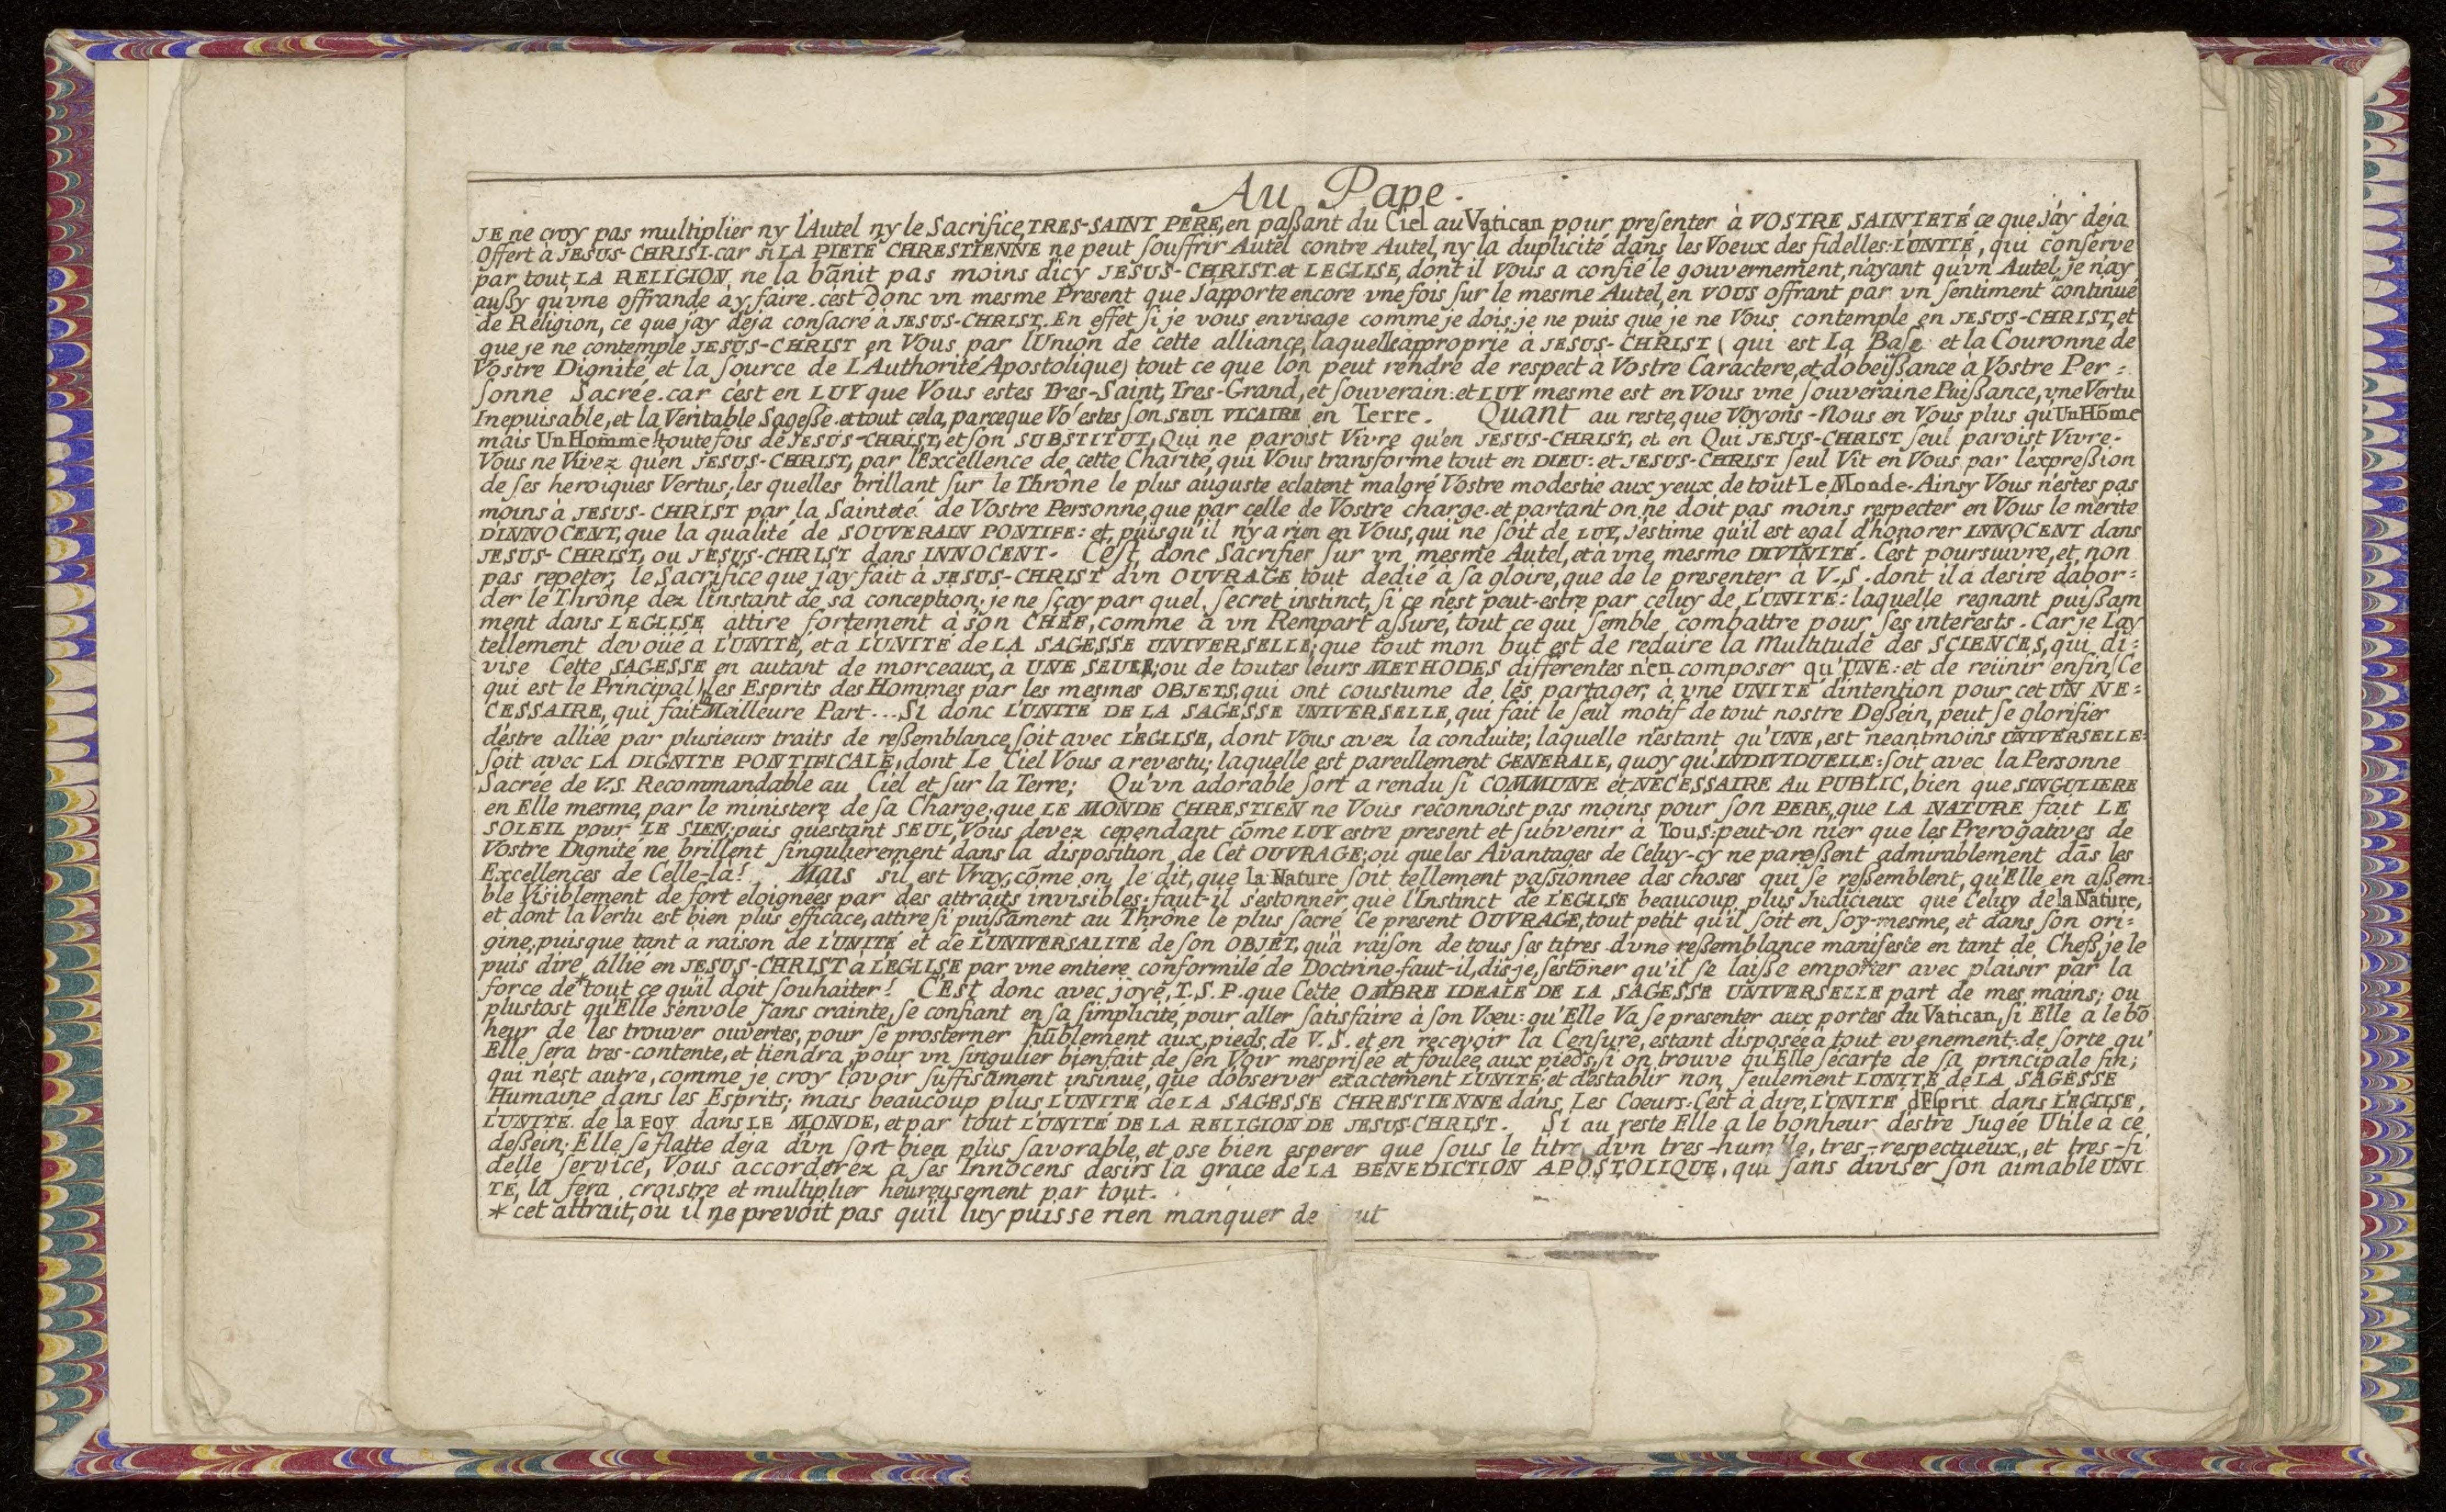 Au Pape.
JE ne croy pas multiplier ny l'Autel ny le Sacrifice, TRES-SAINT PERE, en paßant du Ciel au Vatican pour preſenter à VOSTRE SAINTETÉ ce que j'ay deja
Offert à JESUS-CHRIST. car ſi LA PIETÉ CHRESTIENNE ne peut ſouffrir Autel contre Autel, ny la duplicité dans les Voeux des fidelles: L'UNITÉ, qui conſerve
par tout LA RELIGION, ne la bānit pas moins d'icy JESUS-CHRIST. et L'EGLISE, dont il Vous a confié le gouvernement, n'ayant qu'vn Autel, je n'ay
außy qu'vne offrande a y faire. c'est donc vn mesme Present que J'apporte encore vne fois ſur le mesme Autel, en VOUS offrant par vn ſentiment continué
de Religion, ce que j'ay deja conſacré à JESUS-CHRIST. En effet ſi je vous enviſage comme je dois, je ne puis que je ne Vous contemple en JESUS-CHRIST, et
que je ne contemple JESUS-CHRIST en Vous par l'Union de cette alliance, laquelle approprie à JESUS-CHRIST (qui est La Baſe et la Couronne de
Vostre Dignité et la ſource de L'Authorité Apostolique) tout ce que l'on peut rendre de respect à Vostre Caractere, et d'obeïßance à Vostre Per:
ſonne Sacrée. car c'est en LUY que Vous estes Tres-Saint, Tres-Grand, et ſouverain: et LUY mesme est en Vous vne ſouveraine Puißance, vne Vertu
Inepuisable, et la Veritable Sageße. et tout cela, parceque Vo' estes ſon SEUL VICAIRE en Terre. Quant au reste, que Voyons-Nous en Vous plus qu'Un Hōme
mais Un Homme! toutefois de JESUS-CHRIST, et ſon SUBSTITUT, Qui ne paroist Vivre qu'en JESUS-CHRIST, et en Qui JESUS-CHRIST ſeul paroist Vivre.
Vous ne Vivez qu'en JESUS-CHRIST, par l'Excellence de cette Charité, qui Vous transforme tout en DIEU: et JESUS-CHRIST ſeul Vit en Vous par l'expreßion
de ſes heroiques Vertus; les quelles brillant ſur le Thrône le plus auguste eclatent malgré Vostre modestie aux yeux de tout Le Monde. Ainsy Vous n'estes pas
moins à JESUS-CHRIST par la Sainteté de Vostre Personne, que par celle de Vostre charge. et partant on ne doit pas moins respecter en Vous le merite
D'INNOCENT, que la qualité de SOUVERAIN PONTIFE: et, puisqu'il n'y a rien en Vous, qui ne ſoit de LUY, J'estime qu'il est egal d'honorer INNOCENT dans
JESUS-CHRIST, ou JESUS-CHRIST dans INNOCENT. C'est donc Sacrifier ſur vn mesme Autel, et à vne mesme DIVINITÉ. C'est poursuivre, et non
pas repeter, le Sacrifice que j'ay fait à JESUS-CHRIST d'vn OUVRAGE tout dedié à ſa gloire, que de le presenter à V.S. dont il a desiré d'abor:
der le Thrône dez l'instant de sa conception; je ne ſçay par quel ſecret instinct, ſi ce n'est peut-estre par celuy de L'UNITÉ: laquelle regnant puißam
ment dans L'EGLISE attire fortement à son CHEF, comme à vn Rempart aßuré, tout ce qui ſemble combattre pour ſes interests. Car je L'ay
tellement devoüé à L'UNITÉ, et à L'UNITÉ de LA SAGESSE UNIVERSELLE; que tout mon but est de reduire la Multitude des SCIENCES, qui di:
vise Cette SAGESSE en autant de morceaux, à UNE SEULE; ou de toutes leurs METHODES differentes n'en composer qu'UNE: et de reünir enfin (Ce
qui est le Principal) les Esprits des Hommes par les mesmes OBJETS, qui ont coustume de les partager, à vne UNITÉ d'intention pour cet UN NE:
CESSAIRE, qui fait la Meilleure Part... Si donc L'UNITÉ DE LA SAGESSE UNIVERSELLE, qui fait le ſeul motif de tout nostre Deßein, peut ſe glorifier
d'estre alliée par plusieurs traits de reßemblance, ſoit avec L'EGLISE, dont Vous avez la conduite; laquelle n'estant qu'UNE, est neantmoins UNIVERSELLE:
ſoit avec LA DIGNITÉ PONTIFICALE, dont Le Ciel Vous a revestu; laquelle est pareillement GENERALE, quoy qu'INDIVIDUELLE: ſoit avec la Personne
Sacrée de V.S. Recommandable au Ciel et ſur la Terre; Qu'vn adorable ſort a rendu ſi COMMUNE et NECESSAIRE Au PUBLIC, bien que SINGULIERE
en Elle mesme, par le ministere de ſa Charge; que LE MONDE CHRESTIEN ne Vous reconnoist pas moins pour ſon PERE, que LA NATURE fait LE
SOLEIL pour LE SIEN; puis qu'estant SEUL, Vous devez cependant cōme LUY estre present et ſubvenir à Tous: peut-on nier que les Prerogatives de
Vostre Dignité ne brillent ſingulierement dans la disposition de Cet OUVRAGE; ou que les Avantages de Celuy-cy ne pareßent admirablement dās les
Excellences de Celle-là! Mais s'il est Vray, cōme on le dit, que la Nature ſoit tellement paßionnee des choses qui ſe reßemblent, qu'Elle en aßem:
ble Viſiblement de fort eloignées par des attraits invisibles; faut-il s'estonner que l'Instinct de L'EGLISE beaucoup plus Judicieux que Celuy de la Nature,
et dont la Vertu est bien plus efficace, attire ſi puißāment au Thrône le plus sacré Ce present OUVRAGE, tout petit qu'il ſoit en ſoy-mesme, et dans ſon ori:
gine; puisque tant a raison de L'UNITÉ et de L'UNIVERSALITÉ de ſon OBJET, qu'à raiſon de tous ſes titres d'vne reßemblance manifeste en tant de Chefs, je le
puis dire allié en JESUS-CHRIST à L'EGLISE par vne entiere conformité de Doctrine. faut-il, dis-je, s'estōner qu'il ſe laiße emporter avec plaisir par la
force de * tout ce qu'il doit ſouhaiter! C'Est donc avec joye, T.S.P. que Cette OMBRE IDEALE DE LA SAGESSE UNIVERSELLE part de mes mains; ou
plustost qu'Elle s'envole ſans crainte, ſe confiant en ſa ſimplicité, pour aller ſatisfaire à ſon Vœu: qu'Elle Va ſe presenter aux portes du Vatican, ſi Elle a le bō
heur de les trouver ouvertes, pour ſe prosterner hūblement aux pieds de V.S. et en recevoir la Cenſure, estant disposée à tout evenement: de ſorte qu'
Elle ſera tres-contente, et tiendra pour vn ſingulier bienfait de s'en Voir mesprisée et foulée aux pieds, ſi on trouve qu'Elle s'écarte de ſa principale fin;
qui n'est autre, comme je croy l'avoir ſuffisāment insinué, que d'observer exactement L'UNITÉ; et d'establir non ſeulement L'UNITÉ de LA SAGESSE
Humaine dans les Esprits; mais beaucoup plus L'UNITÉ de LA SAGESSE CHRESTIENNE dans Les Cœurs: C'est à dire, L'UNITÉ d'Eſprit dans L'EGLISE,
L'UNITÉ de la FOY dans LE MONDE, et par tout L'UNITÉ DE LA RELIGION DE JESUS-CHRIST. Si au reste Elle a le bonheur d'estre Jugée Utile à ce
deßein; Elle ſe flatte deja d'vn ſort bien plus favorable, et ose bien esperer que ſous le titre d'vn tres-humble, tres-respectueux, et tres-fi
delle ſervice, Vous accorderez à ſes Innocens desirs la grace de LA BENEDICTION APOSTOLIQUE, qui ſans diviser ſon aimable UNI
TÉ, la fera croistre et multiplier heureusement par tout.
* cet attrait, ou il ne prevoit pas qu'il luy puisse rien manquer de